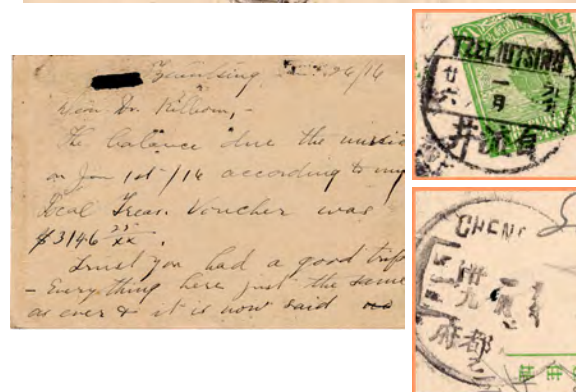 Jan 26/16
Dear Dr. Kilborn, -
The balance due the missio
on Jan 1st/16 according to my
Local Treas. Voucher was
$3146 25/xx.
Trust you had a good trip
- Everything here just the same
as ever & it is now said no
TZELIUTSING
廿六 一月
自流井
CHENG
廿九 一月
都府